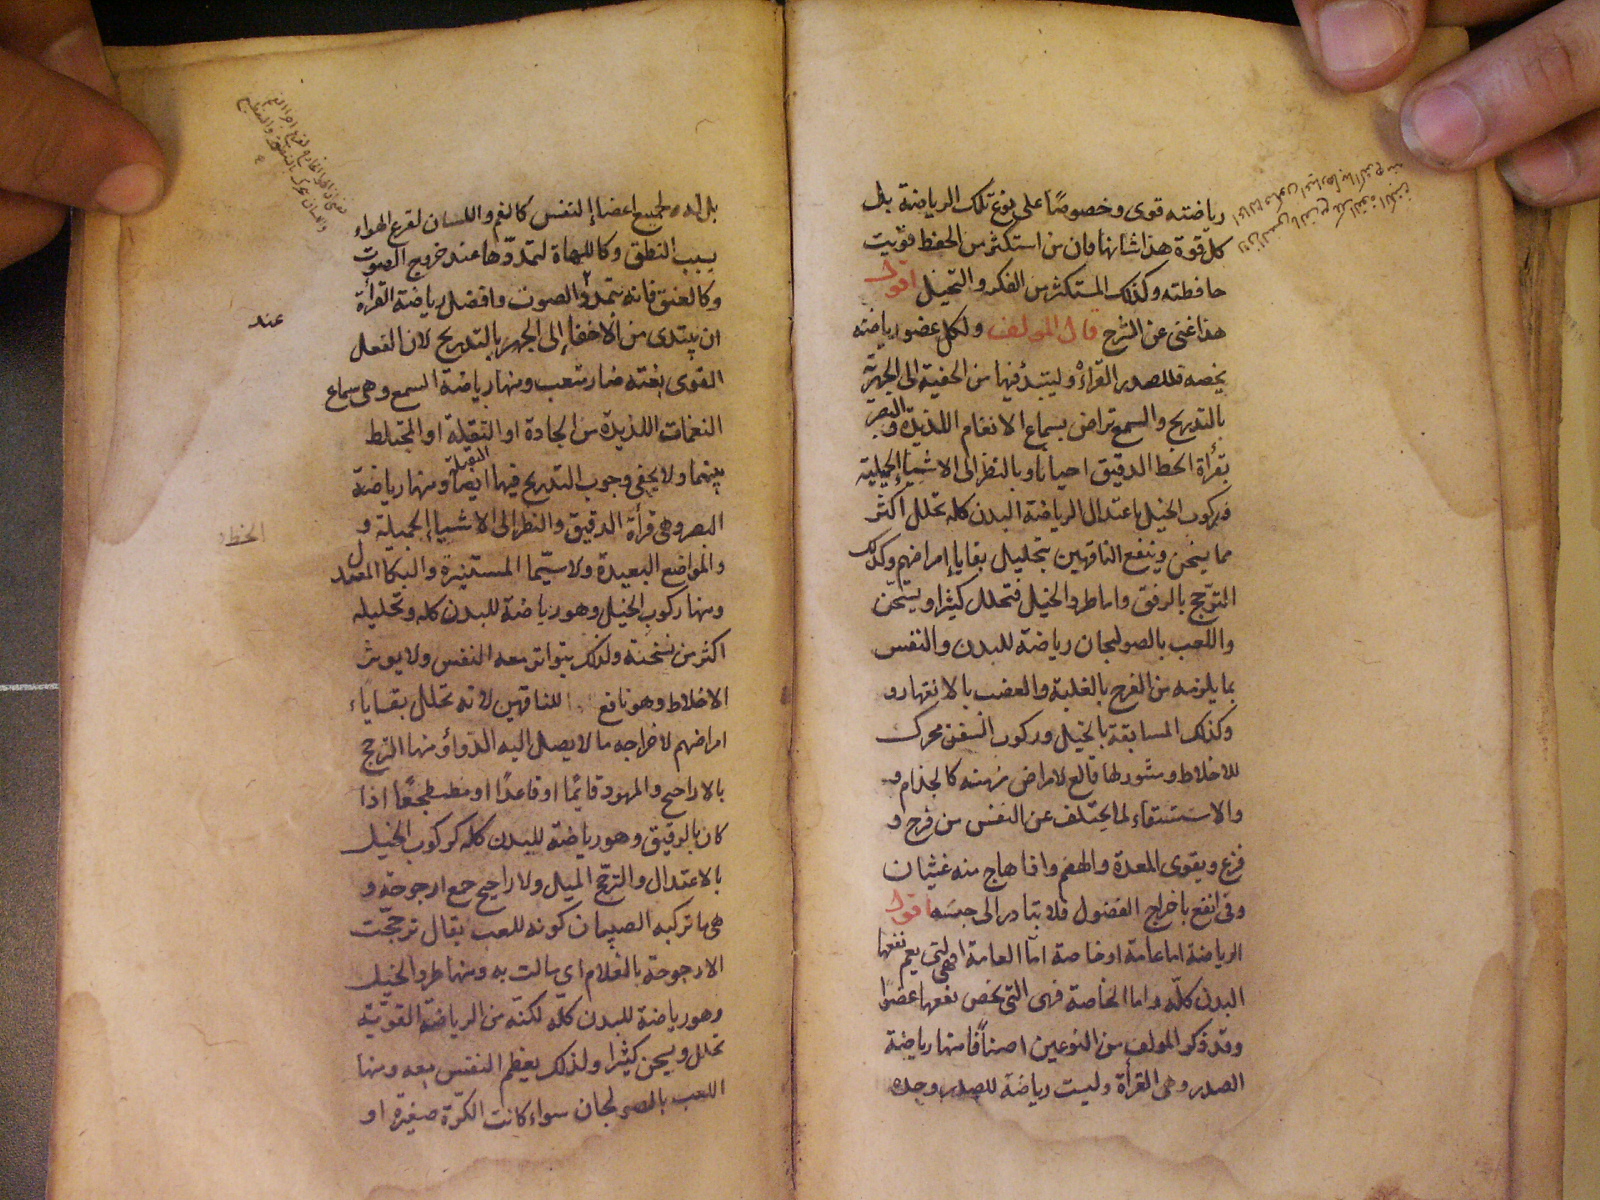 رياضته قوى وخصوصًا على نوع تلك الرياضة بل
كل قوة هذا شانها فان من استكثر من الحفظ قويت
حافظته وكذلك المستكثر من الفكر والتخيل اقول
هذا غنى عن الشرح قال المولف ولكل عضو رياضته
يخصه فللصدر القراءة وليبتدئ فيها من الخفية الى الجهرية
بالتدريج والسمع تراض بسماع الانغام اللذيذة والبصر
بقرأة الخط الدقيق احيانا وبالنظر الى الاشياء الجميلة
فركوب الخيل باعتدال الرياضة البدن كله تحلل اكثر
مما يسخن وينفع الناقهين بتحليل بقايا امراضهم وكذلك
الترجح بالرفق واما طرد الخيل فتحلل كثيرا ويسخن
واللعب بالصولجان رياضة للبدن والنفس
بما يلزمه من الفرح بالغلبة والغضب بالانقهار و
وكذلك المسابقة بالخيل وركوب السفن محرك
للاخلاط ومثور لها قالع لامراض مزمنه كالجذام و
والاستسقاء لما يختلف عن النفس من فرح و
فزع ويقوى المعدة والهضم واذا هاج منه غثيان
وقئ انفع باخراج الفضول فلا يتبادر الى حبسه اقول
الرياضة اما عامة او خاصة اما العامة فهى التى يعم نفعها
البدن كله واما الخاصة فهى التى يخص نفعها عضوا
وقد ذكر المولف من النوعين اصنافا منها رياضة
الصدر وهى القرأة وليست رياضة للصدر وحده
بل له ولجميع اعضاء التنفس كالفم واللسان لقرع الهواء
بسبب النطق وكاللهاة لتمددها عند خروج الصوت
وكالعنق فانه يتمدد الصوت وافضل رياضة القرأة
عند
ان يبتدى من الاخفاء الى الجهر بالتدريج لان الفعل
القوى بغته ضار متعب ومنها رياضة السمع وهى سماع
النغمات اللذيذة من الحادة او الثقيلة او المختلط
بينهما ولا يخفى وجوب التدريج فيها ايضا ومنها رياضة
البصر وهى قرأة الدقيق والنظر الى الاشياء الجميلة و
الخط
والمواضع البعيدة ولا سيما المستنيرة والبكا المعتدل
ومنها ركوب الخيل وهو رياضة للبدن كله وتحليله
اكثر من تسخنه ولذلك يتواتر معه النفس ولا يوثر
الاخلاط وهو نافع للناقهين لانه تحلل بقاياء
امراضهم لاخراجه ما لا يصل اليه الدواؤ منها الترجح
بالاراجيح والمهود قايمًا او قاعدًا او مضطجعًا اذا
كان بالرفيق وهو رياضة للبدن كله كركوب الخيل
بالاعتدال والترجح الميل والاراجيح جمع ارجوحة و
هى ما تركبه الصبيان كونه للعب يقال ترجحت
الارجوحة بالغلام اى مالت به ومنها طرد الخيل
وهو رياضة للبدن كله لكنه من الرياضة القوية
تحلل ويسخن كثيرا ولذلك يعظم النفس معه ومنها
اللعب بالصولجان سواء كانت الكرة صغيرة او